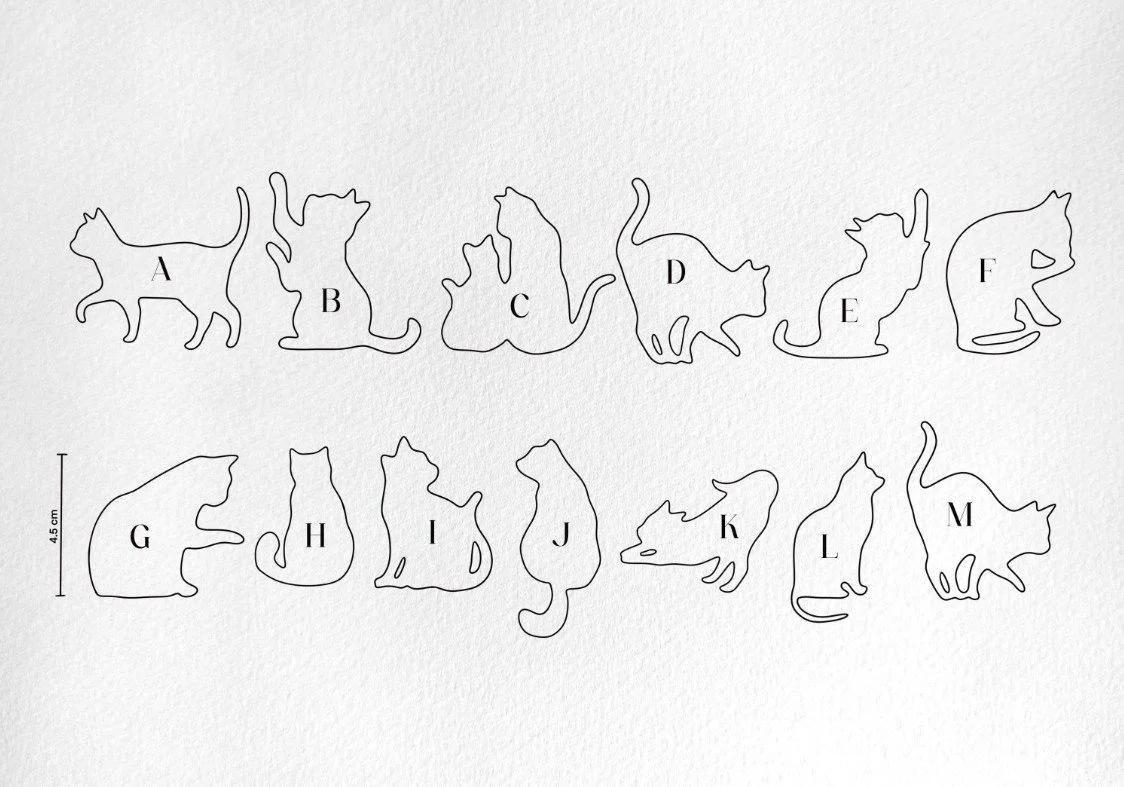 A
B
C
D
E
F
4.5 cm
G
H
I
J
K
L
M